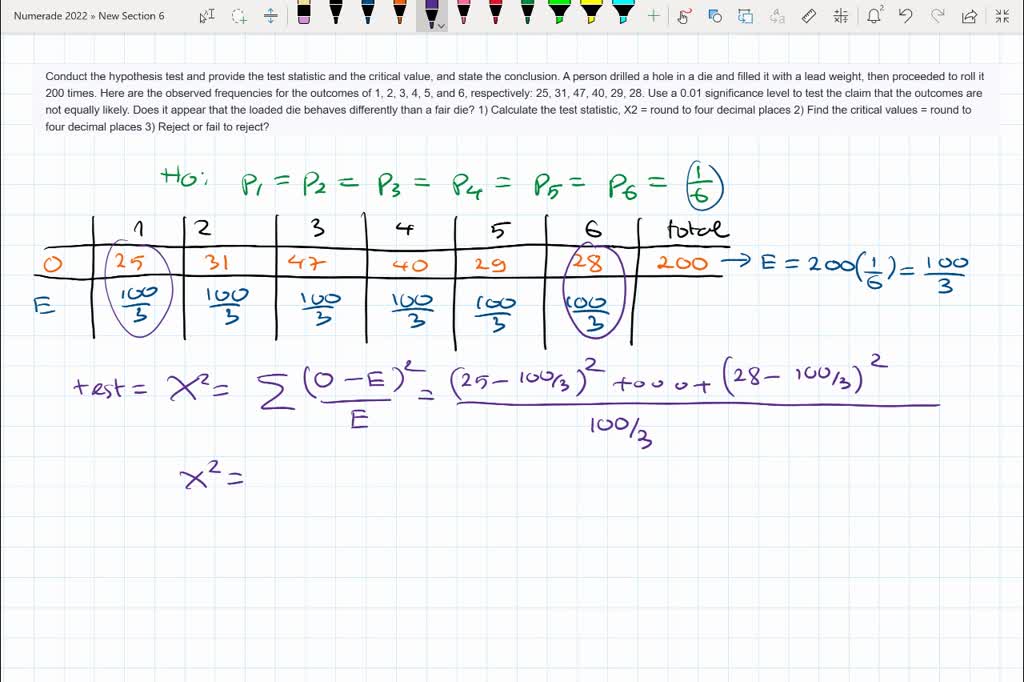 Numerade 2022 » New Section 6
Conduct the hypothesis test and provide the test statistic and the critical value, and state the conclusion. A person drilled a hole in a die and filled it with a lead weight, then proceeded to roll it
200 times. Here are the observed frequencies for the outcomes of 1, 2, 3, 4, 5, and 6, respectively: 25, 31, 47, 40, 29, 28. Use a 0.01 significance level to test the claim that the outcomes are
not equally likely. Does it appear that the loaded die behaves differently than a fair die? 1) Calculate the test statistic, X2 = round to four decimal places 2) Find the critical values = round to
four decimal places 3) Reject or fail to reject?
Ho: P1 = P2 = P3 = P4 = P5 = P6 = 1/6
1 2 3 4 5 6 total
O 25 31 47 40 29 28 200 → E = 200(1/6) = 100/3
E 100/3 100/3 100/3 100/3 100/3 100/3
test = X² = Σ (O-E)²/E = (25-100/3)² +ooo+ (28-100/3)² / 100/3
X² =